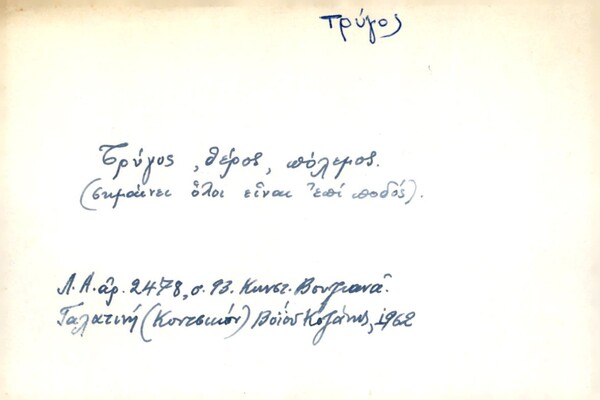 τρύγος
Τρύγος, θέρος, πόλεμος.
(σημαίνει ὅλοι εἶναι ἐπί ποδός).
Λ.Α. ἀρ. 2478, σ. 93. Κωνστ.
Γαλατινή (Κοντσικόν) Βοΐου Κοζάνης, 1962